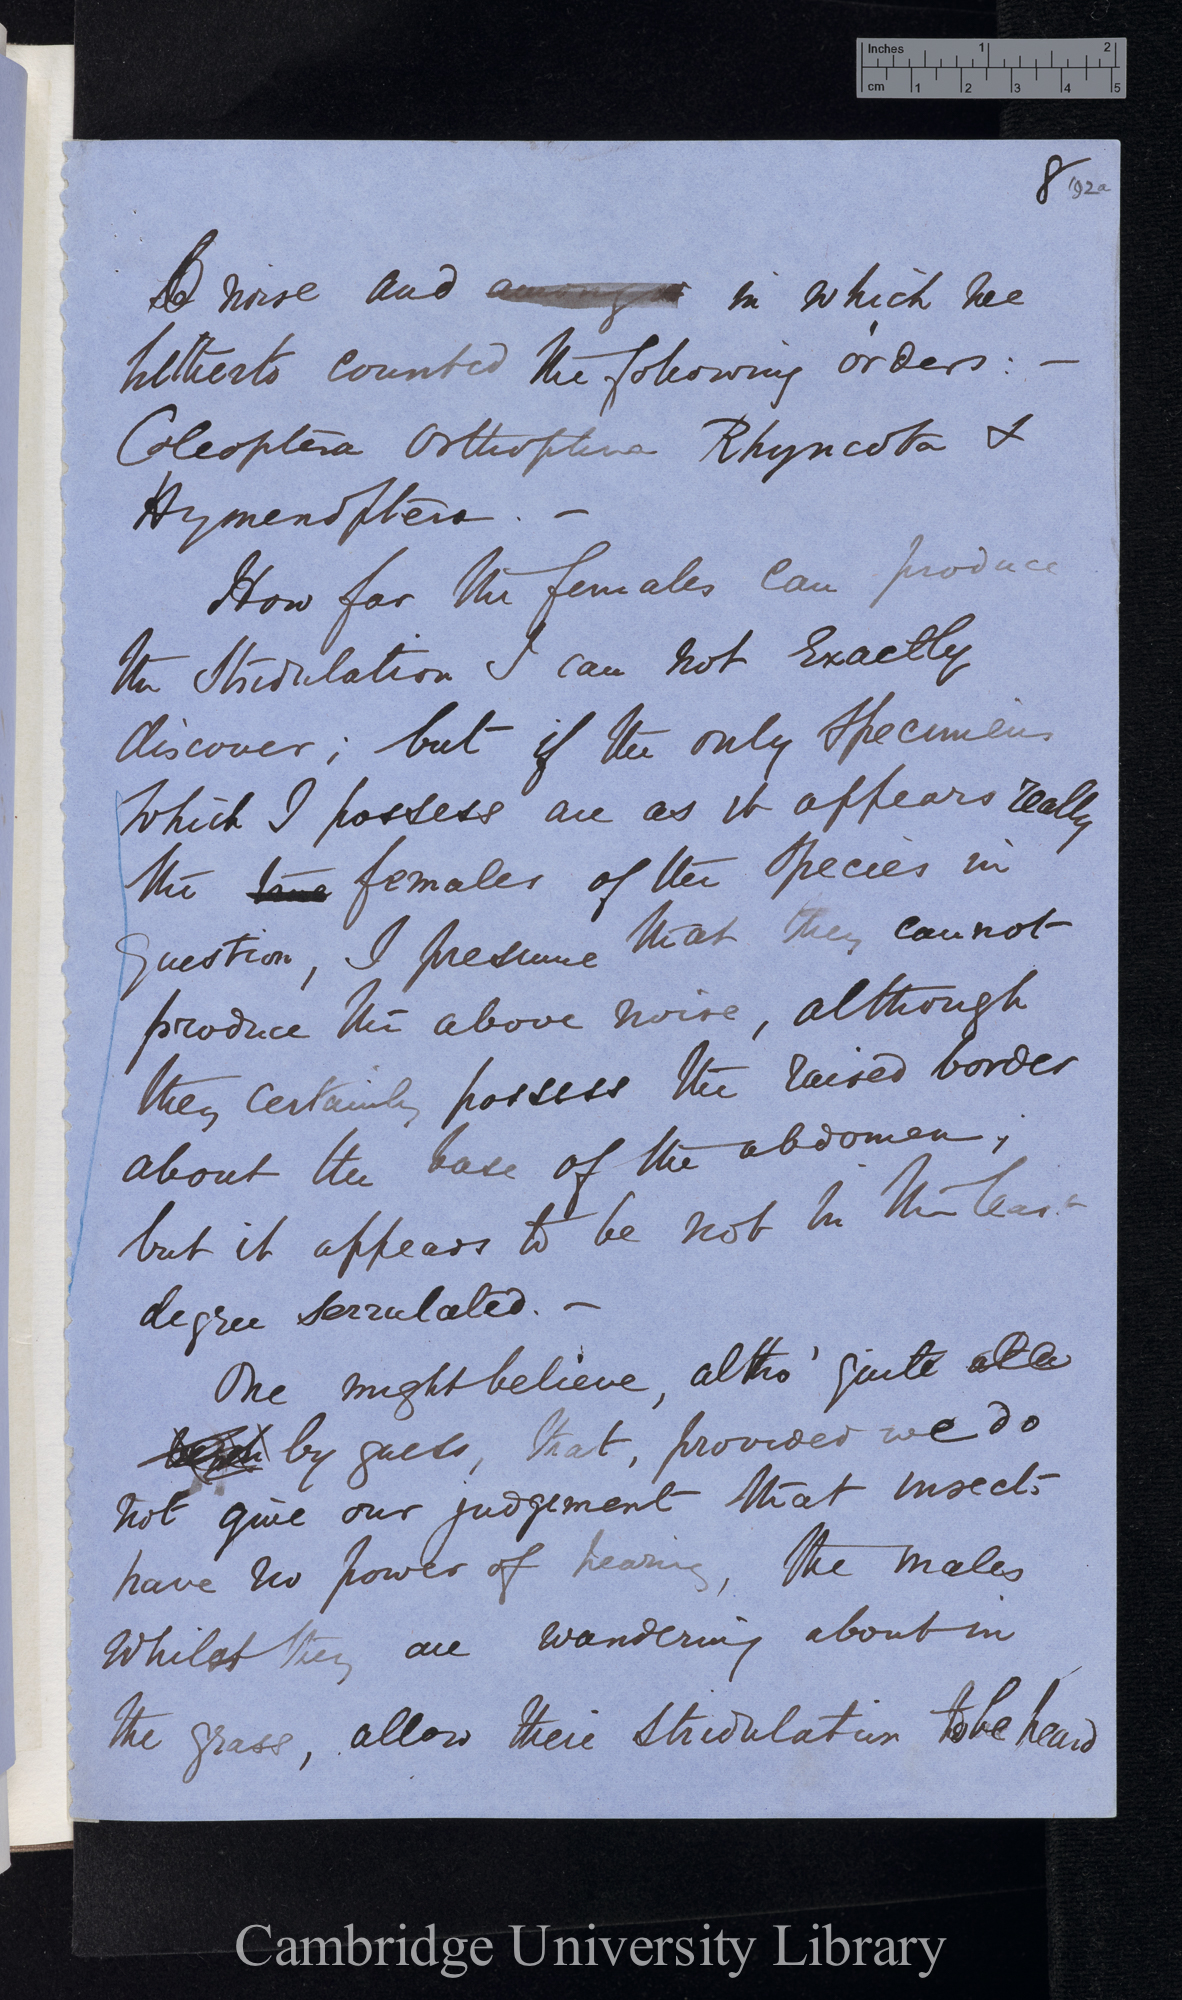 Inches 1 2
cm 1 2 3 4 5
8 192a
noise and amongst in which we
hitherto counted the following orders: —
Coleoptera Orthoptera Rhyncota &
Hymenoptera. —
How far the females can produce
the Stridulation I can not Exactly
discover; but if the only Specimens
which I possess are as it appears really
the true females of the Species in
question, I presume that they cannot
produce the above noise, although
they certainly possess the raised border
about the base of the abdomen,
but it appears to be not in the least
degree serrulated. —
One might believe, altho' quite
by guess, that, provided we do
not give our judgement that insects
have no power of hearing, the males
whilst they are wandering about in
the grass, allow their stridulation to be heard
Cambridge University Library